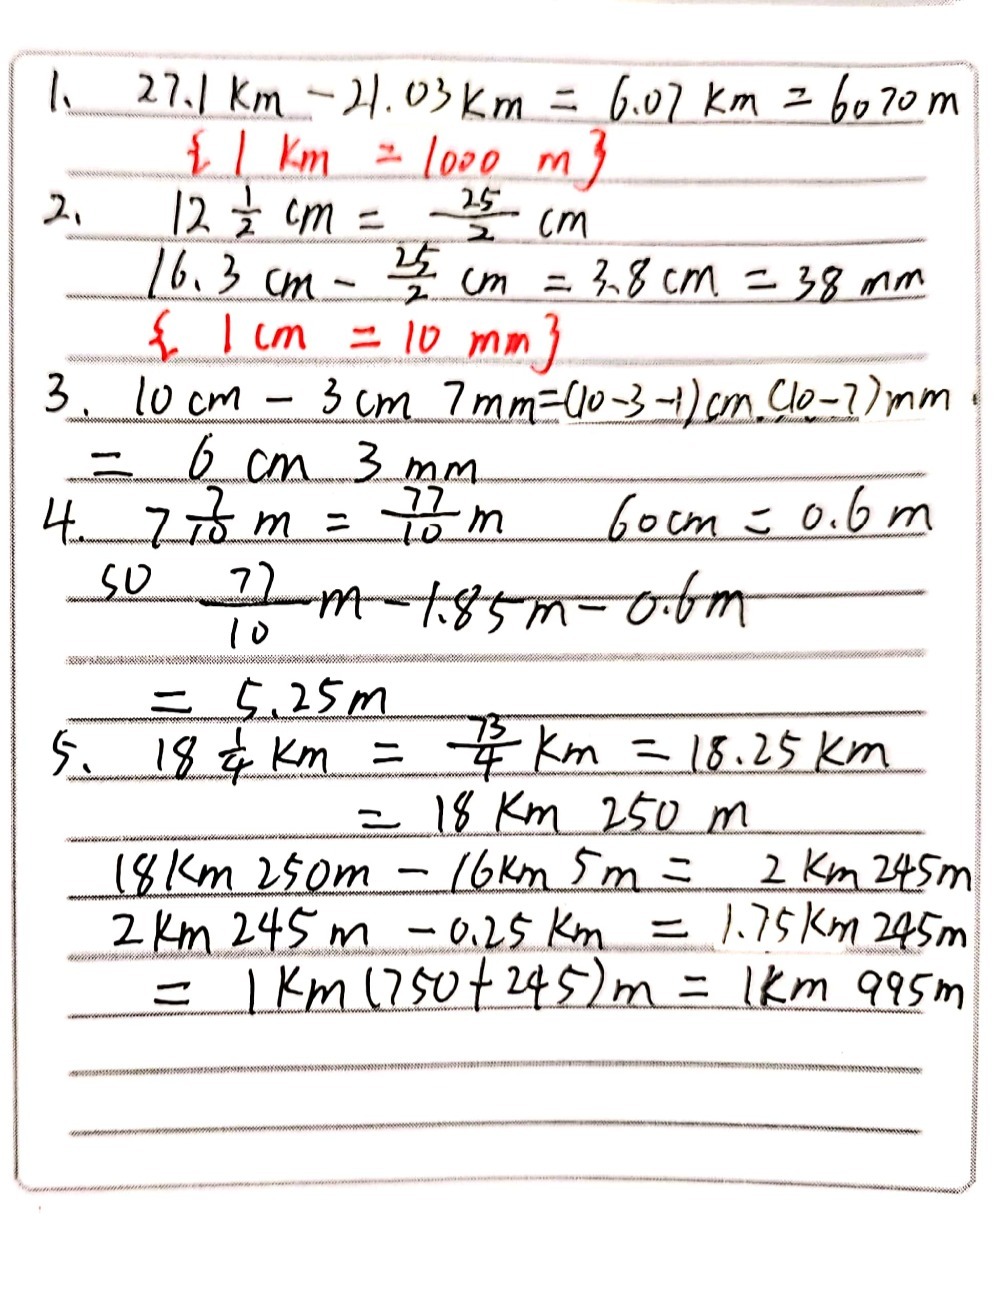 1、 27.1 Km - 21.03 Km = 6.07 Km = 6070 m
{ 1 Km = 1000 m }
2、 12 1/2 cm = 25/2 cm
16.3 cm - 25/2 cm = 3.8 cm = 38 mm
{ 1 cm = 10 mm }
3. 10 cm - 3 cm 7 mm = (10-3-1) cm. (10-7) mm
= 6 cm 3 mm
4. 7 7/10 m = 77/10 m 60 cm = 0.6 m
so 77/10 m - 1.85 m - 0.6 m
= 5.25 m
5、 18 1/4 Km = 73/4 Km = 18.25 Km
= 18 Km 250 m
18 Km 250 m - 16 Km 5 m = 2 Km 245 m
2 Km 245 m - 0.25 Km = 1.75 Km 245 m
= 1 Km (750 + 245) m = 1 Km 995 m